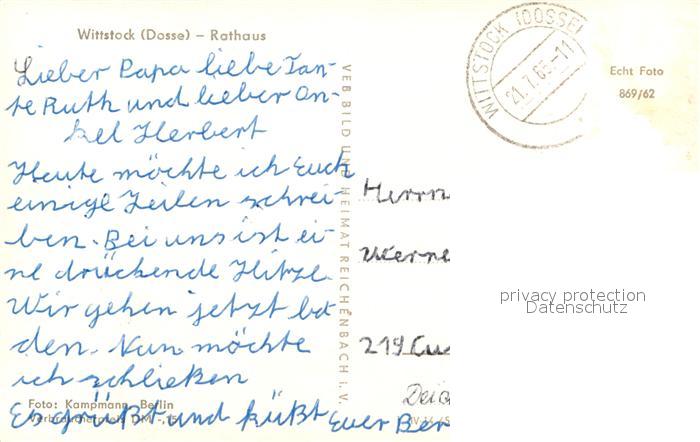 Wittstock (Dosse) – Rathaus
Lieber Papa liebe Tan-
te Ruth und lieber On-
kel Herbert
Heute möchte ich Euch
einige Zeilen schrei-
ben. Bei uns ist ei-
ne drückende Hitze.
Wir gehen jetzt ba
den. Nun möchte
ich schließen
Es grüßt und küßt Euer Ber
Foto: Kampmann, Berlin
Verbraucherpreis DM -,15
VEB BILD UND HEIMAT REICHENBACH i. V.
WITTSTOCK (DOSSE)
21.7.65.-11
Echt Foto
869/62
Herrn
Werne
219 Cu
privacy protection
Datenschutz